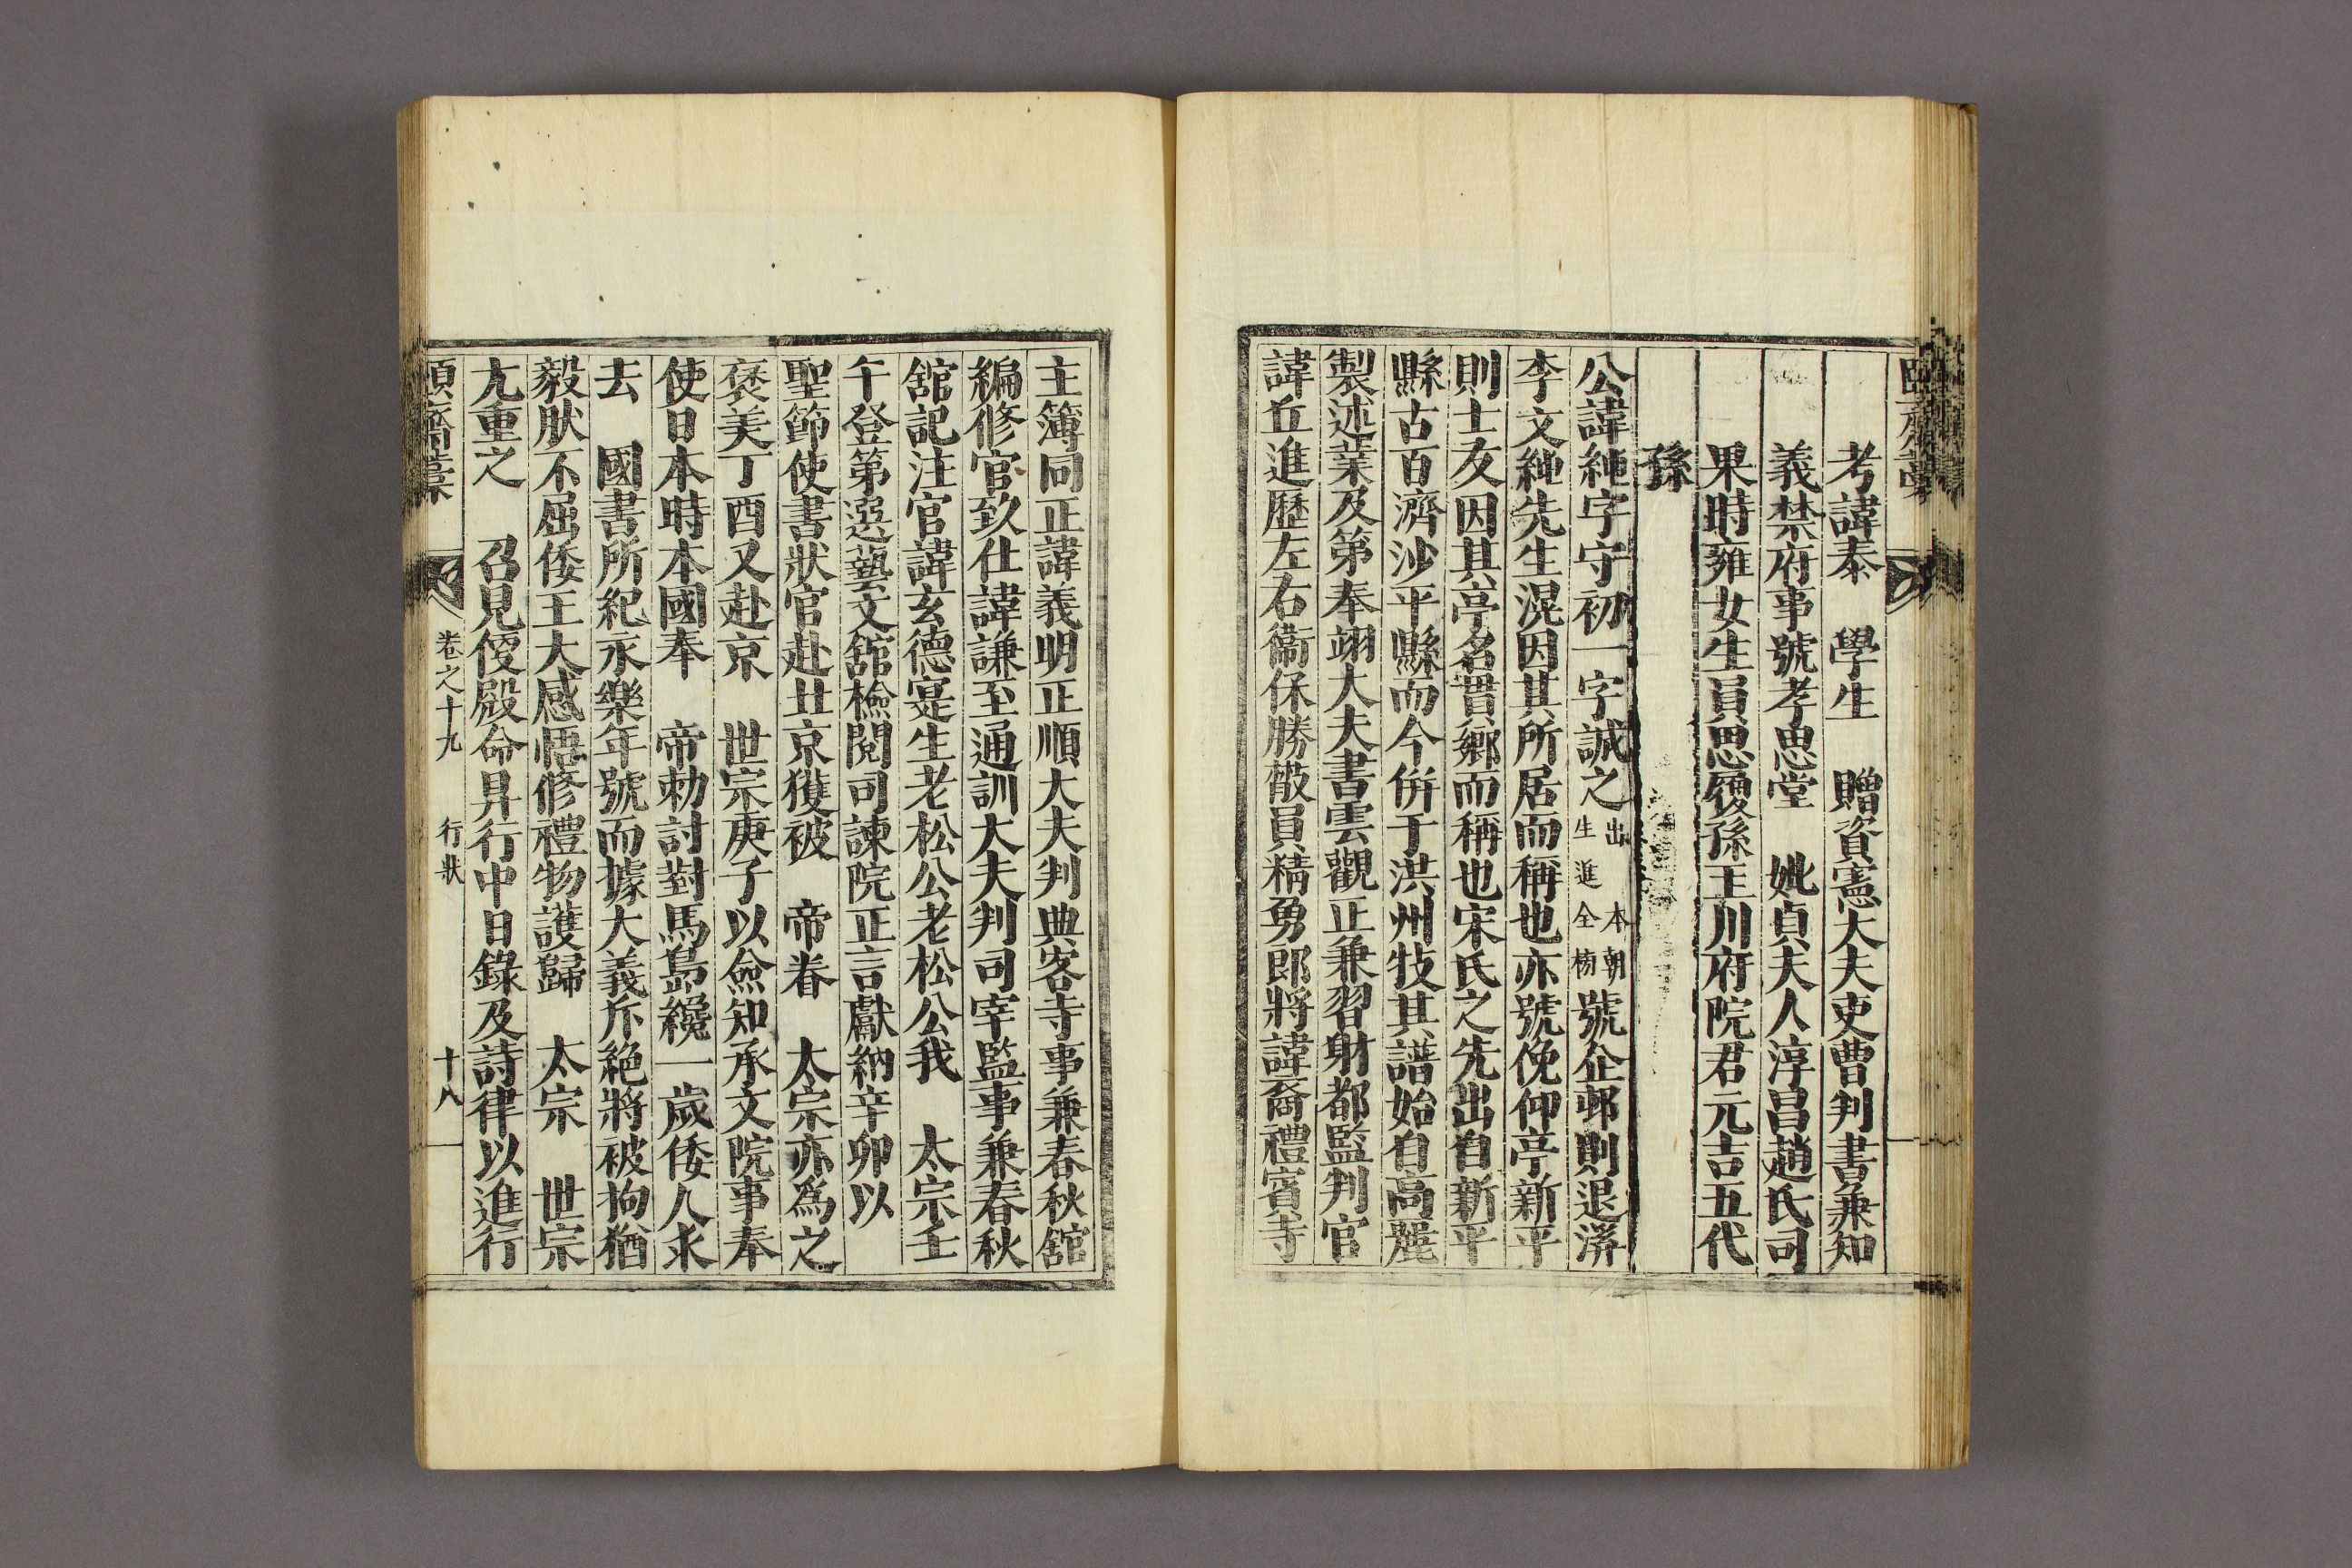 考諱泰　學生　贈資憲大夫吏曹判書兼知
義禁府事號孝思堂　妣貞夫人淳昌趙氏司
果時雍女生員思慶孫玉川府院君元吉五代
孫
公諱純字守初一字誠之出　本朝生進全榜號企邨則退溪
李文純先生滉因其所居而稱也亦號俛仰亭新平
則士友因其亭名實鄉而稱也宋氏之先出自新平
縣古百濟沙平縣而今併于洪州牧其譜始自高麗
諱丘進歷左右衞保勝散員精勇郎將諱裔禮賓寺
製述業及第奉翊大夫書雲觀正兼習射都監判官
主簿同正諱義明正順大夫判典客寺事兼春秋舘
編修官致仕諱謙至通訓大夫判司宰監事兼春秋
舘記注官諱玄德寔生老松公老松公我　太宗壬
午登第選藝文舘檢閱司諫院正言獻納辛卯以
聖節使書狀官赴北京獲被　帝眷　太宗亦爲之
褒美丁酉又赴京　世宗庚子以僉知承文院事奉
使日本時本國奉　帝勅討對馬島纔一歲倭人求
去　國書所紀永樂年號而據大義斥絶將被拘猶
毅肰不屈倭王大感悟修禮物護歸　太宗　世宗
尤重之　召見便殿命昇行中日錄及詩律以進行
卷之十九　行狀　十八